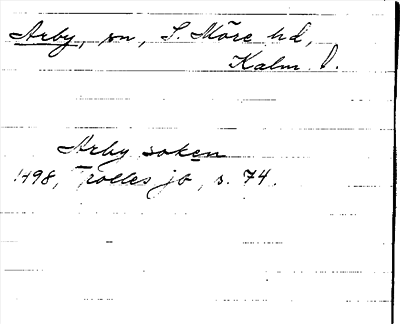 Arby, sn, S. Möre hd,
Kalm. l.
Arby soken
1498, Trolles jb, s. 74.